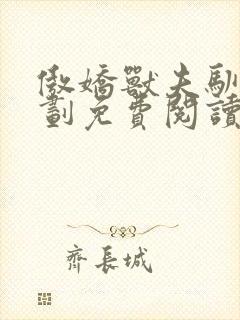 傲嬌獸夫馴
劃免費閱讀
齊長城